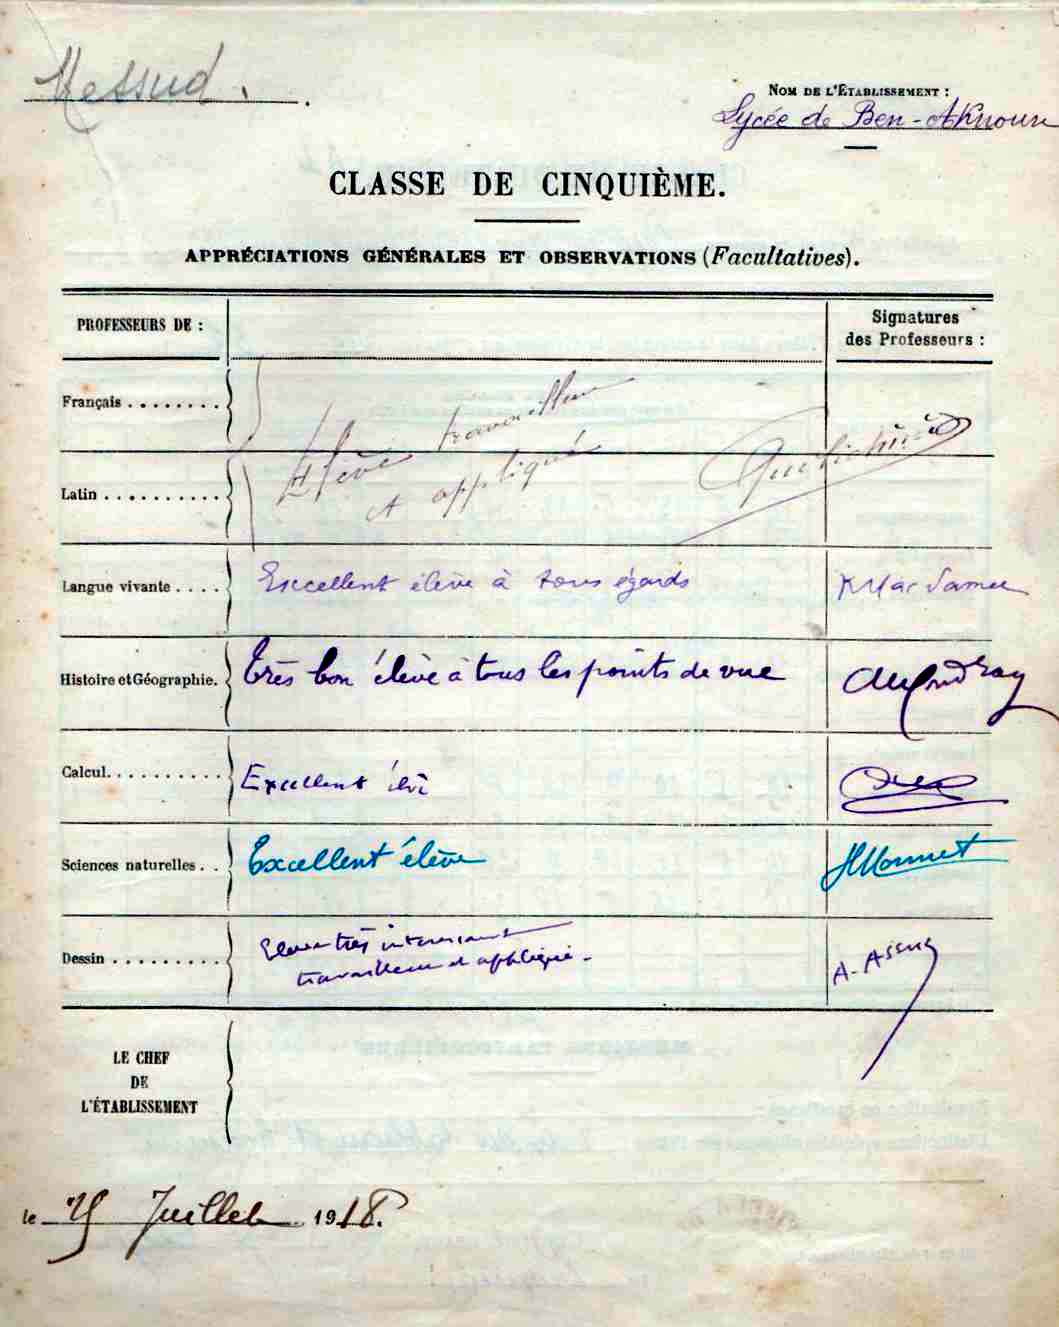 Messud.
NOM DE L'ÉTABLISSEMENT :
Lycée de Ben-Aknoun
CLASSE DE CINQUIÈME.
APPRÉCIATIONS GÉNÉRALES ET OBSERVATIONS (Facultatives).
PROFESSEURS DE :
Signatures
des Professeurs :
Français . . . . . . . .
Élève travailleur
et appliqué
Latin . . . . . . . . . .
Langue vivante . . . .
Excellent élève à tous égards
Histoire et Géographie.
Très bon élève à tous les points de vue
Calcul. . . . . . . . . .
Excellent élève
Sciences naturelles . .
Excellent élève
HMonnet
Dessin . . . . . . . . .
Élève très intéressant
travailleur et appliqué.
A. Assus
LE CHEF
DE
L'ÉTABLISSEMENT
le Juillet 1918.